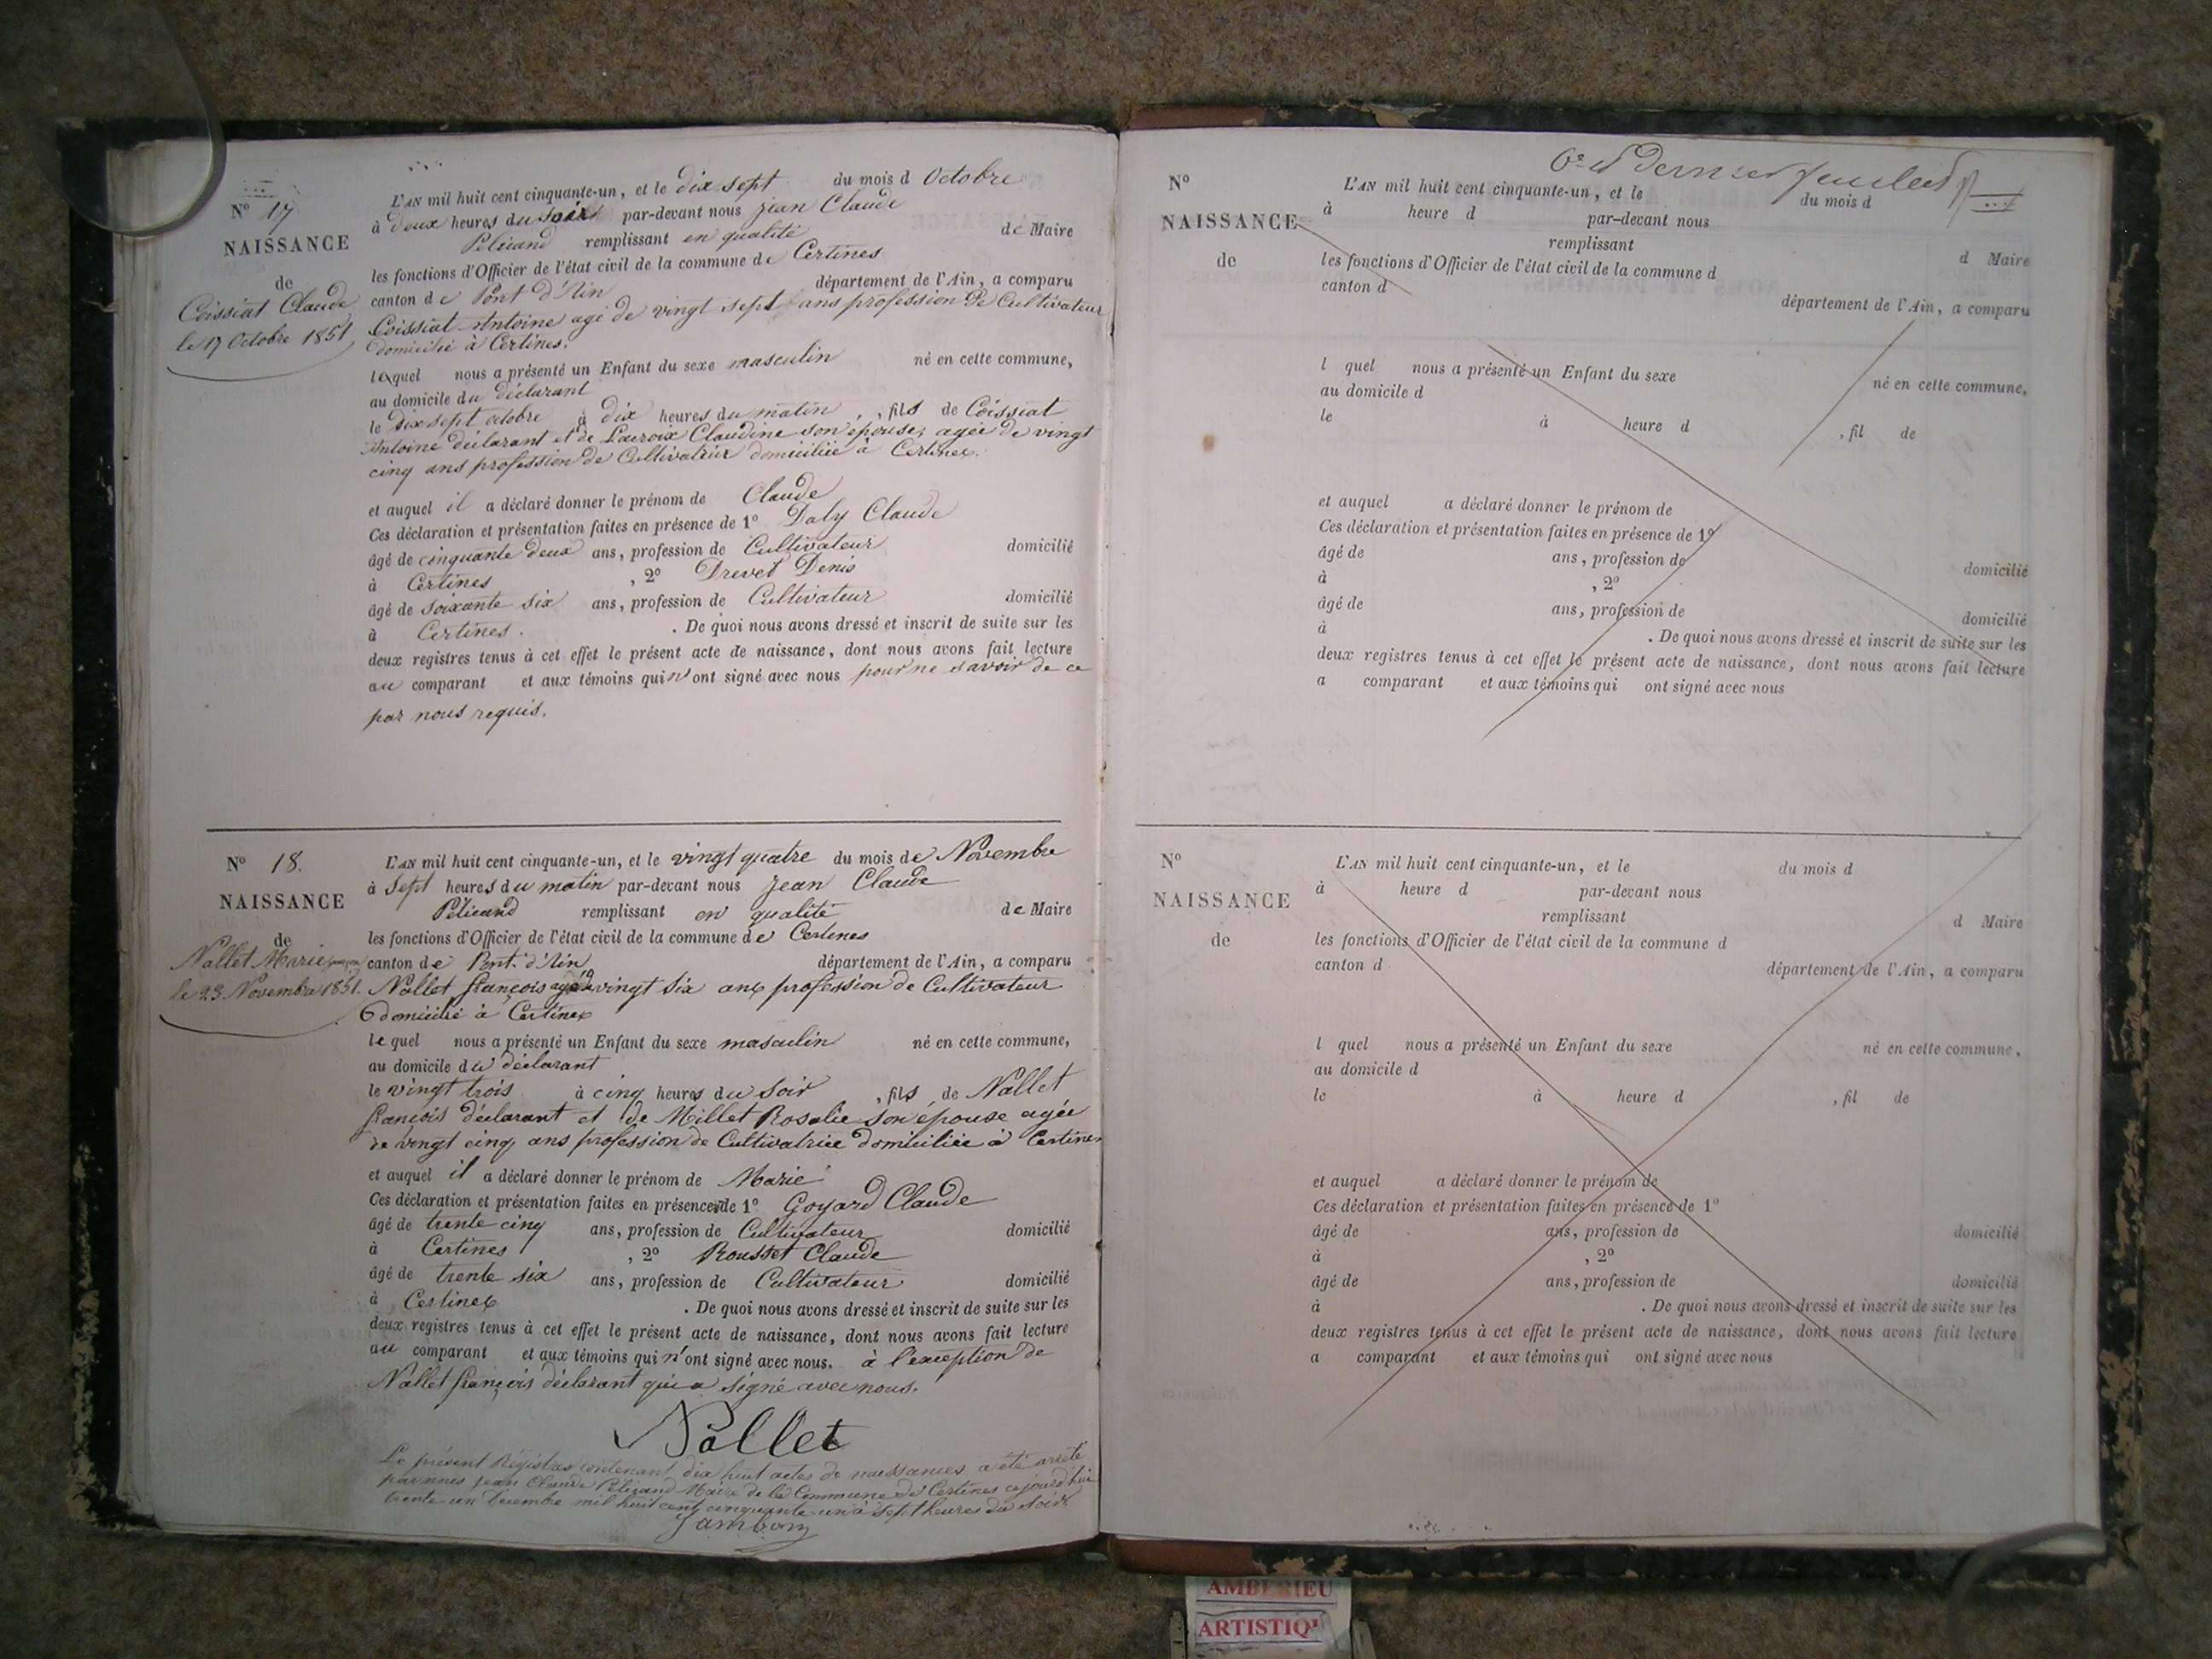 N° 17
NAISSANCE
de
Coissiat Claude
le 17 Octobre 1851
L'AN mil huit cent cinquante-un, et le dix sept du mois d Octobre
à deux heures du soir par-devant nous Jean Claude
Pélicand remplissant en qualité de Maire
les fonctions d'Officier de l'état civil de la commune de Certines
canton de Pont d'Ain département de l'Ain, a comparu
Coissiat Antoine agé de vingt sept ans profession de Cultivateur
domicilié à Certines.
lequel nous a présenté un Enfant du sexe masculin né en cette commune,
au domicile du déclarant
le dix sept octobre à dix heures du matin, fils de Coissiat
Antoine déclarant et de Lacroix Claudine son épouse, agée de vingt
cinq ans profession de Cultivatrice domiciliée à Certines.
et auquel il a déclaré donner le prénom de Claude
Ces déclaration et présentation faites en présence de 1° Daly Claude
âgé de cinquante deux ans, profession de Cultivateur domicilié
à Certines, 2° Drevet Denis
âgé de soixante six ans, profession de Cultivateur domicilié
à Certines. . De quoi nous avons dressé et inscrit de suite sur les
deux registres tenus à cet effet le présent acte de naissance, dont nous avons fait lecture
au comparant et aux témoins qui n'ont signé avec nous pour ne savoir de ce
par nous requis.
N° 18.
NAISSANCE
de
Nallet Marie
le 23 Novembre 1851.
L'AN mil huit cent cinquante-un, et le vingt quatre du mois de Novembre
à sept heures du matin par-devant nous Jean Claude
Pélicand remplissant en qualité de Maire
les fonctions d'Officier de l'état civil de la commune de Certines
canton de Pont d'Ain département de l'Ain, a comparu
Nallet françois agé de vingt six ans profession de Cultivateur
domicilié à Certines
lequel nous a présenté un Enfant du sexe masculin né en cette commune,
au domicile du déclarant
le vingt trois à cinq heures du soir, fils de Nallet
françois déclarant et de Millet Rosalie son épouse agée
de vingt cinq ans profession de Cultivatrice domiciliée à Certines
et auquel il a déclaré donner le prénom de Marie
Ces déclaration et présentation faites en présence de 1° Goyard Claude
âgé de trente cinq ans, profession de Cultivateur domicilié
à Certines, 2° Rousset Claude
âgé de trente six ans, profession de Cultivateur domicilié
à Certines . De quoi nous avons dressé et inscrit de suite sur les
deux registres tenus à cet effet le présent acte de naissance, dont nous avons fait lecture
au comparant et aux témoins qui n'ont signé avec nous. à l'exception de
Nallet françois déclarant qui a signé avec nous.
Nallet
Le présent Régistre contenant dix huit actes de naissances a été arrêté
par nous Jean Claude Pélicand Maire de la Commune de Certines cejourd'hui
trente un Décembre mil huit cent cinquante-un à sept heures du soir.
Jambon
6e et Dernier feuillet
N°
NAISSANCE
de
L'AN mil huit cent cinquante-un, et le du mois d
à heure d par-devant nous
remplissant d Maire
les fonctions d'Officier de l'état civil de la commune d
canton d département de l'Ain, a comparu
l quel nous a présenté un Enfant du sexe né en cette commune,
au domicile d
le à heure d , fil de
et auquel a déclaré donner le prénom de
Ces déclaration et présentation faites en présence de 1°
âgé de ans, profession de domicilié
à , 2°
âgé de ans, profession de domicilié
à . De quoi nous avons dressé et inscrit de suite sur les
deux registres tenus à cet effet le présent acte de naissance, dont nous avons fait lecture
a comparant et aux témoins qui ont signé avec nous
N°
NAISSANCE
de
L'AN mil huit cent cinquante-un, et le du mois d
à heure d par-devant nous
remplissant d Maire
les fonctions d'Officier de l'état civil de la commune d
canton d département de l'Ain, a comparu
l quel nous a présenté un Enfant du sexe né en cette commune,
au domicile d
le à heure d , fil de
et auquel a déclaré donner le prénom de
Ces déclaration et présentation faites en présence de 1°
âgé de ans, profession de domicilié
à , 2°
âgé de ans, profession de domicilié
à . De quoi nous avons dressé et inscrit de suite sur les
deux registres tenus à cet effet le présent acte de naissance, dont nous avons fait lecture
a comparant et aux témoins qui ont signé avec nous
AMBERIEU
ARTISTIQ